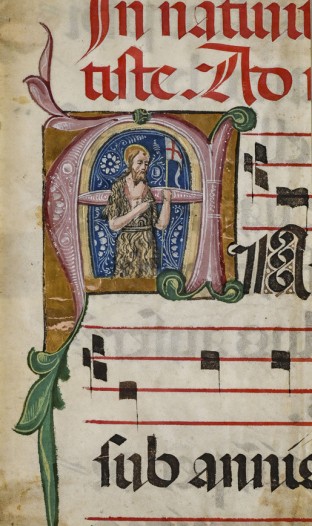 In natiuit
tiste. Ad
Ant
sub annis